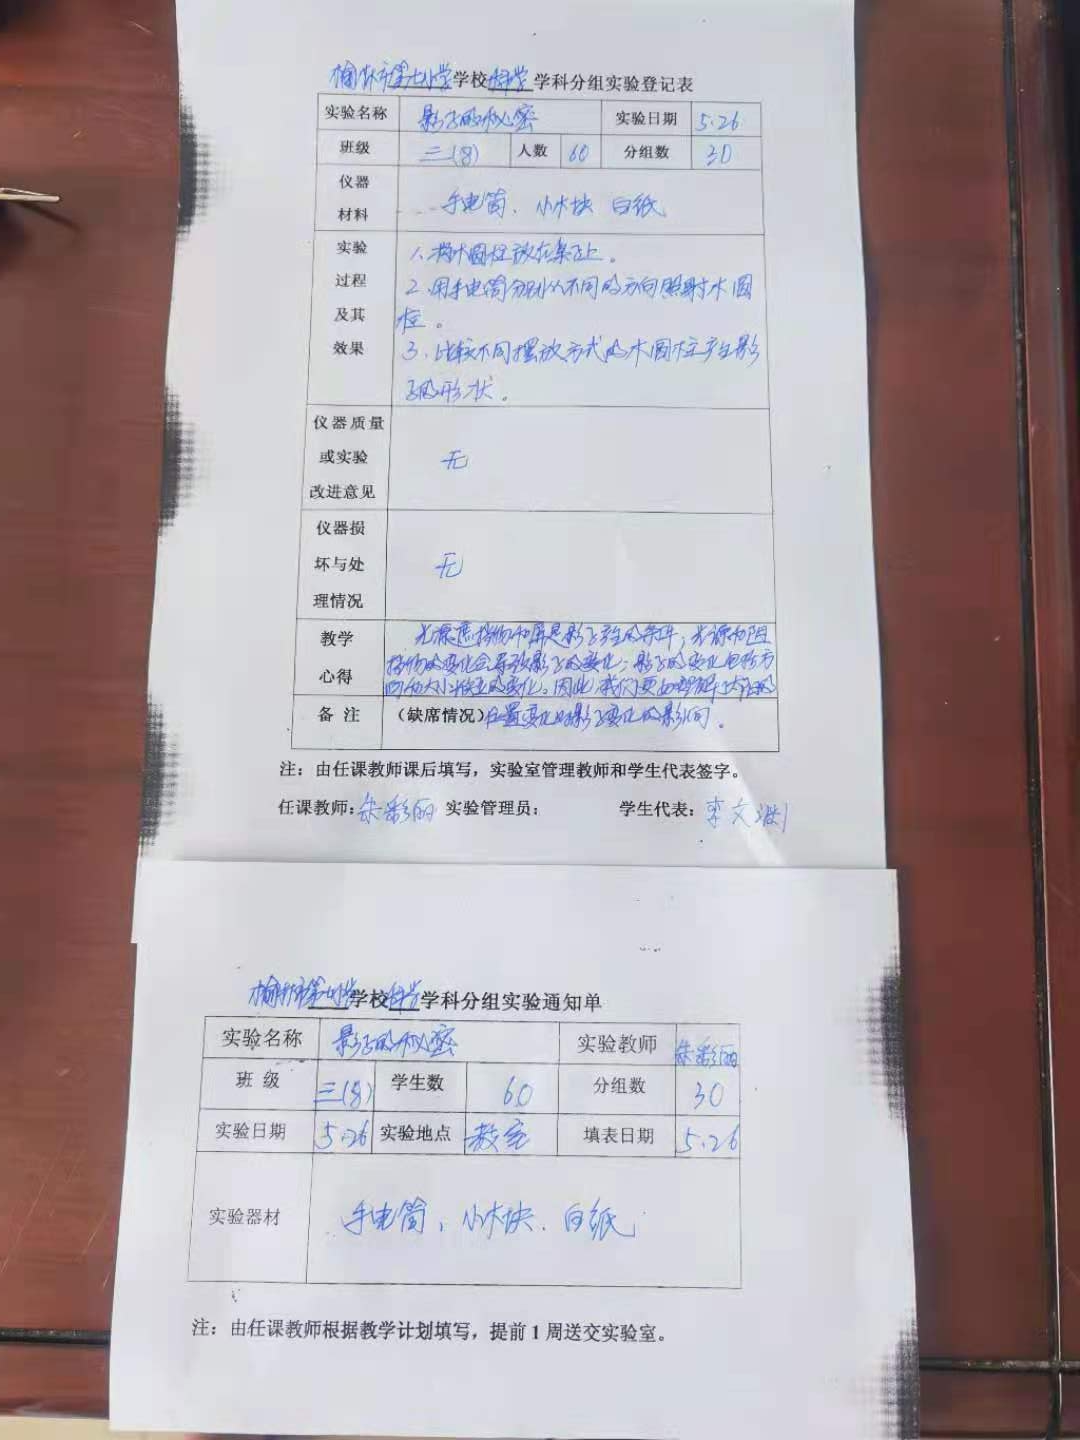 榆林市第七小学学校科学学科分组实验登记表
实验名称 影子的秘密 实验日期 5.26
班级 三(8) 人数 60 分组数 30
仪器材料 手电筒、小木块 白纸
实验过程及其效果 1、将木圆柱放在桌子上。
2、用手电筒分别从不同的方向照射木圆
柱。
3、比较不同摆放方式的木圆柱产生影
子的形状。
仪器质量或实验改进意见 无
仪器损坏与处理情况 无
教学心得 光源遮挡物和屏是影子产生的条件,光源和阻
挡物的变化会导致影子的变化;影子的变化包括方
向和大小的变化。因此我们要
备注 (缺席情况)位置变化对影子变化的影响。
注:由任课教师课后填写,实验室管理教师和学生代表签字。
任课教师:朱彩丽 实验管理员: 学生代表:李文渊
榆林市第七小学学校科学学科分组实验通知单
实验名称 影子的秘密 实验教师 朱彩丽
班级 三(8) 学生数 60 分组数 30
实验日期 5.26 实验地点 教室 填表日期 5.26
实验器材 手电筒、小木块、白纸
注:由任课教师根据教学计划填写,提前1周送交实验室。